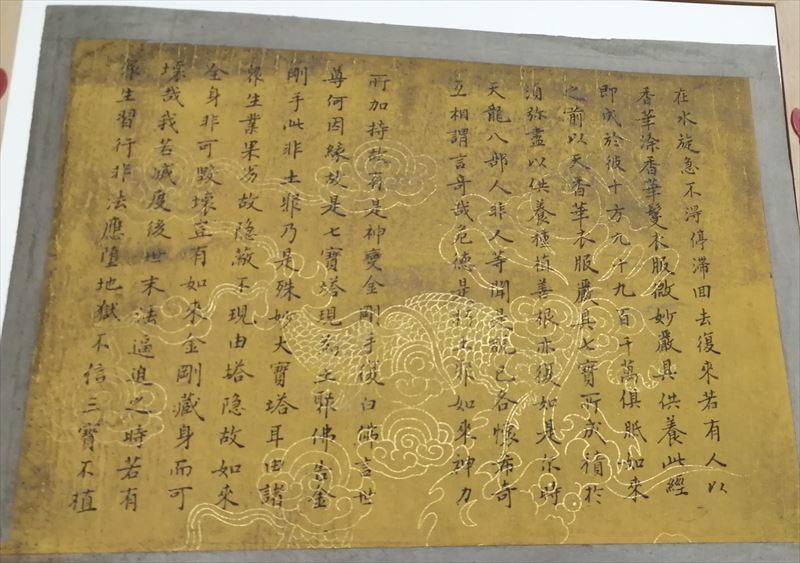 在水旋急不得停滯回去復來若有人以
香華塗香華鬘衣服微妙嚴具供養此經
即成於彼十方九十九百千萬俱胝如來
之前以天香華衣服嚴具七寶所成積於
須弥盡以供養種植善根亦復如是尒時
天龍八部人非人等聞是說已各懷希奇
互相謂言奇哉威德是朽土聚如來神力
所加持故有是神變金剛手復白佛言世
尊何因緣故是七寶塔現為土聚佛告金
剛手此非土聚乃是殊妙大寶塔耳由諸
眾生業果劣故隱蔽不現由塔隱故如來
全身非可毀壞豈有如來金剛藏身而可
壞哉我若滅度後世末法逼迫之時若有
眾生習行非法應墮地獄不信三寶不植